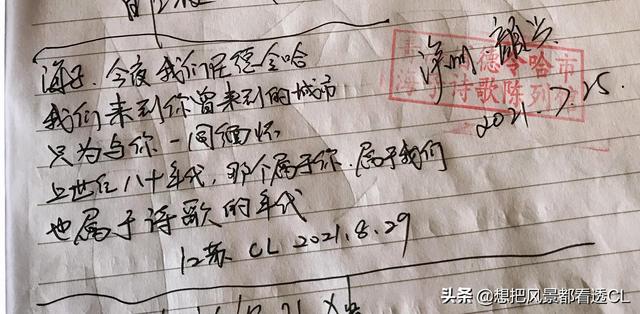 海子,今夜我们在德令哈
我们来到你曾来到的城市
只为与你一同缅怀
上世纪八十年代,那个属于你.属于我们
也属于诗歌的年代
江苏 CL 2021.8.29
德令哈市
海子诗歌陈列
2021.7.25.
头条 @想把风景都看透CL